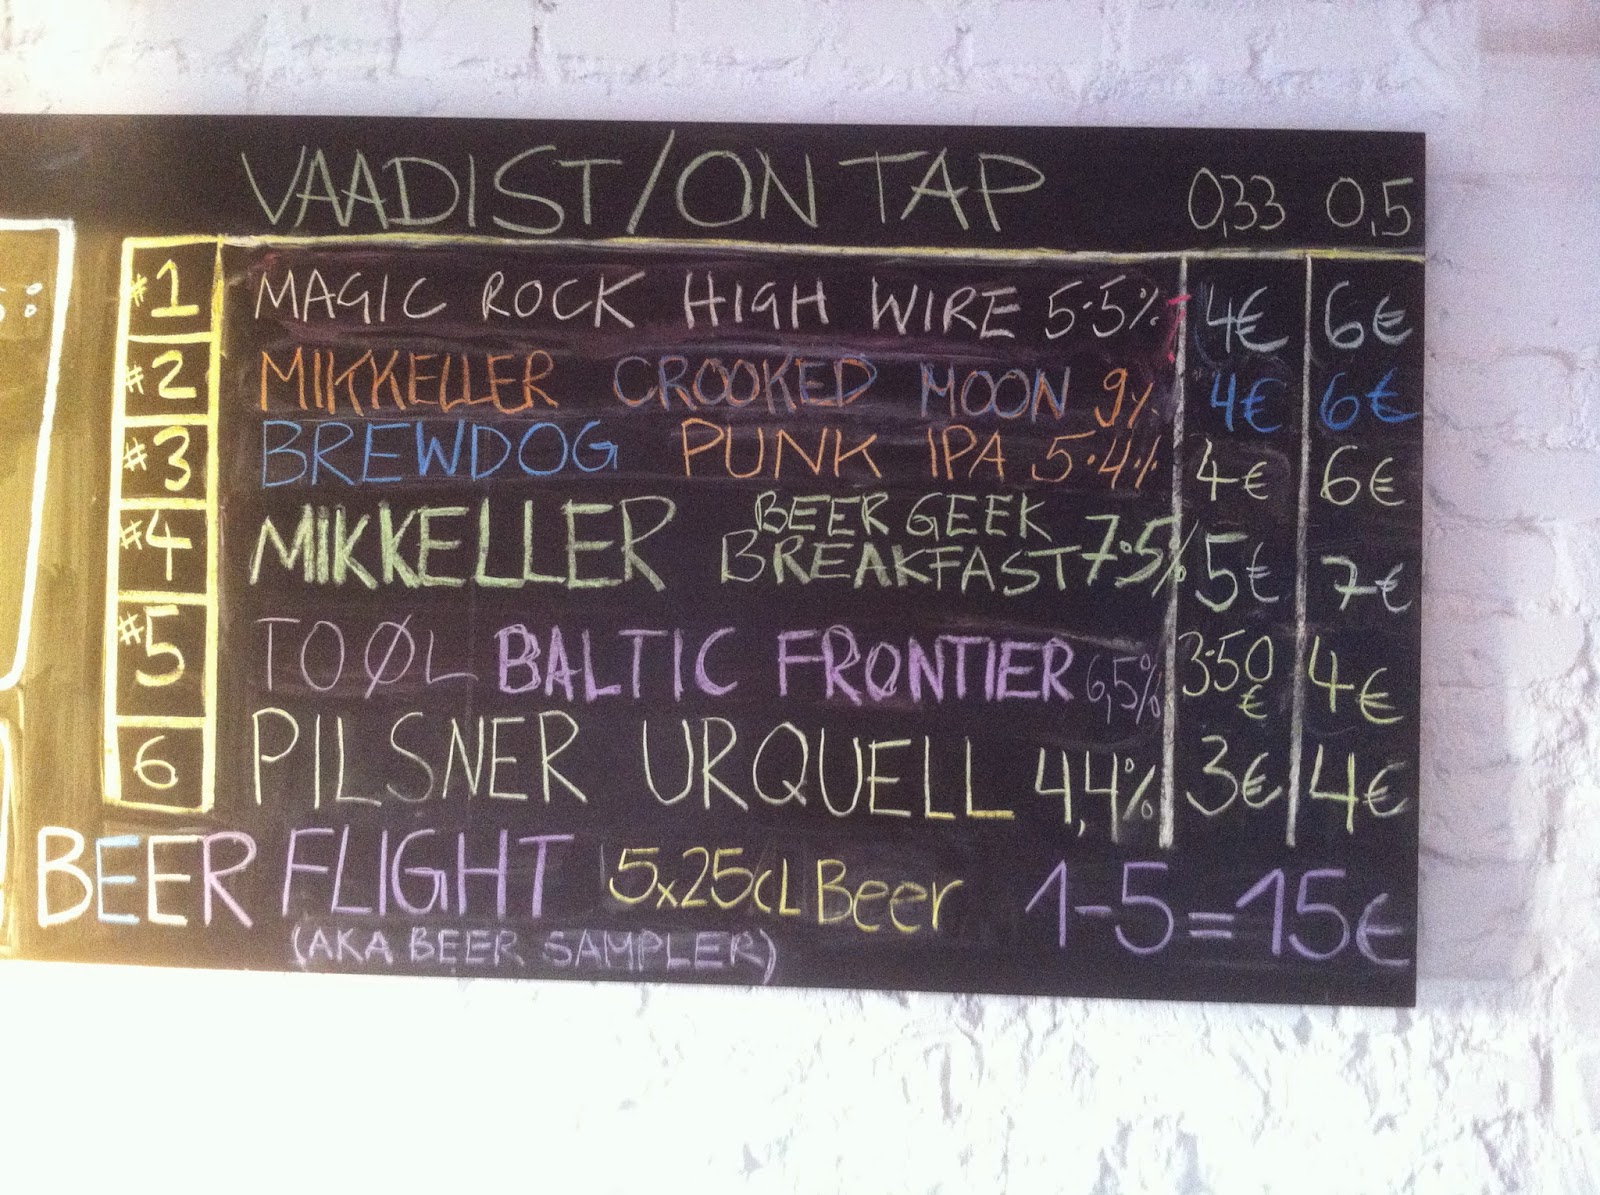 VAADIST/ON TAP 0,33 0,5
#1 MAGIC ROCK HIGH WIRE 5.5% 4€ 6€
#2 MIKKELLER CROOKED MOON 9% 4€ 6€
#3 BREWDOG PUNK IPA 5.4% 4€ 6€
#4 MIKKELLER BEER GEEK
BREAKFAST 7.5% 5€ 7€
#5 TOØL BALTIC FRONTIER 6,5% 3.50€ 4€
6 PILSNER URQUELL 4,4% 3€ 4€
BEER FLIGHT 5x25cL Beer 1-5=15€
(AKA BEER SAMPLER)